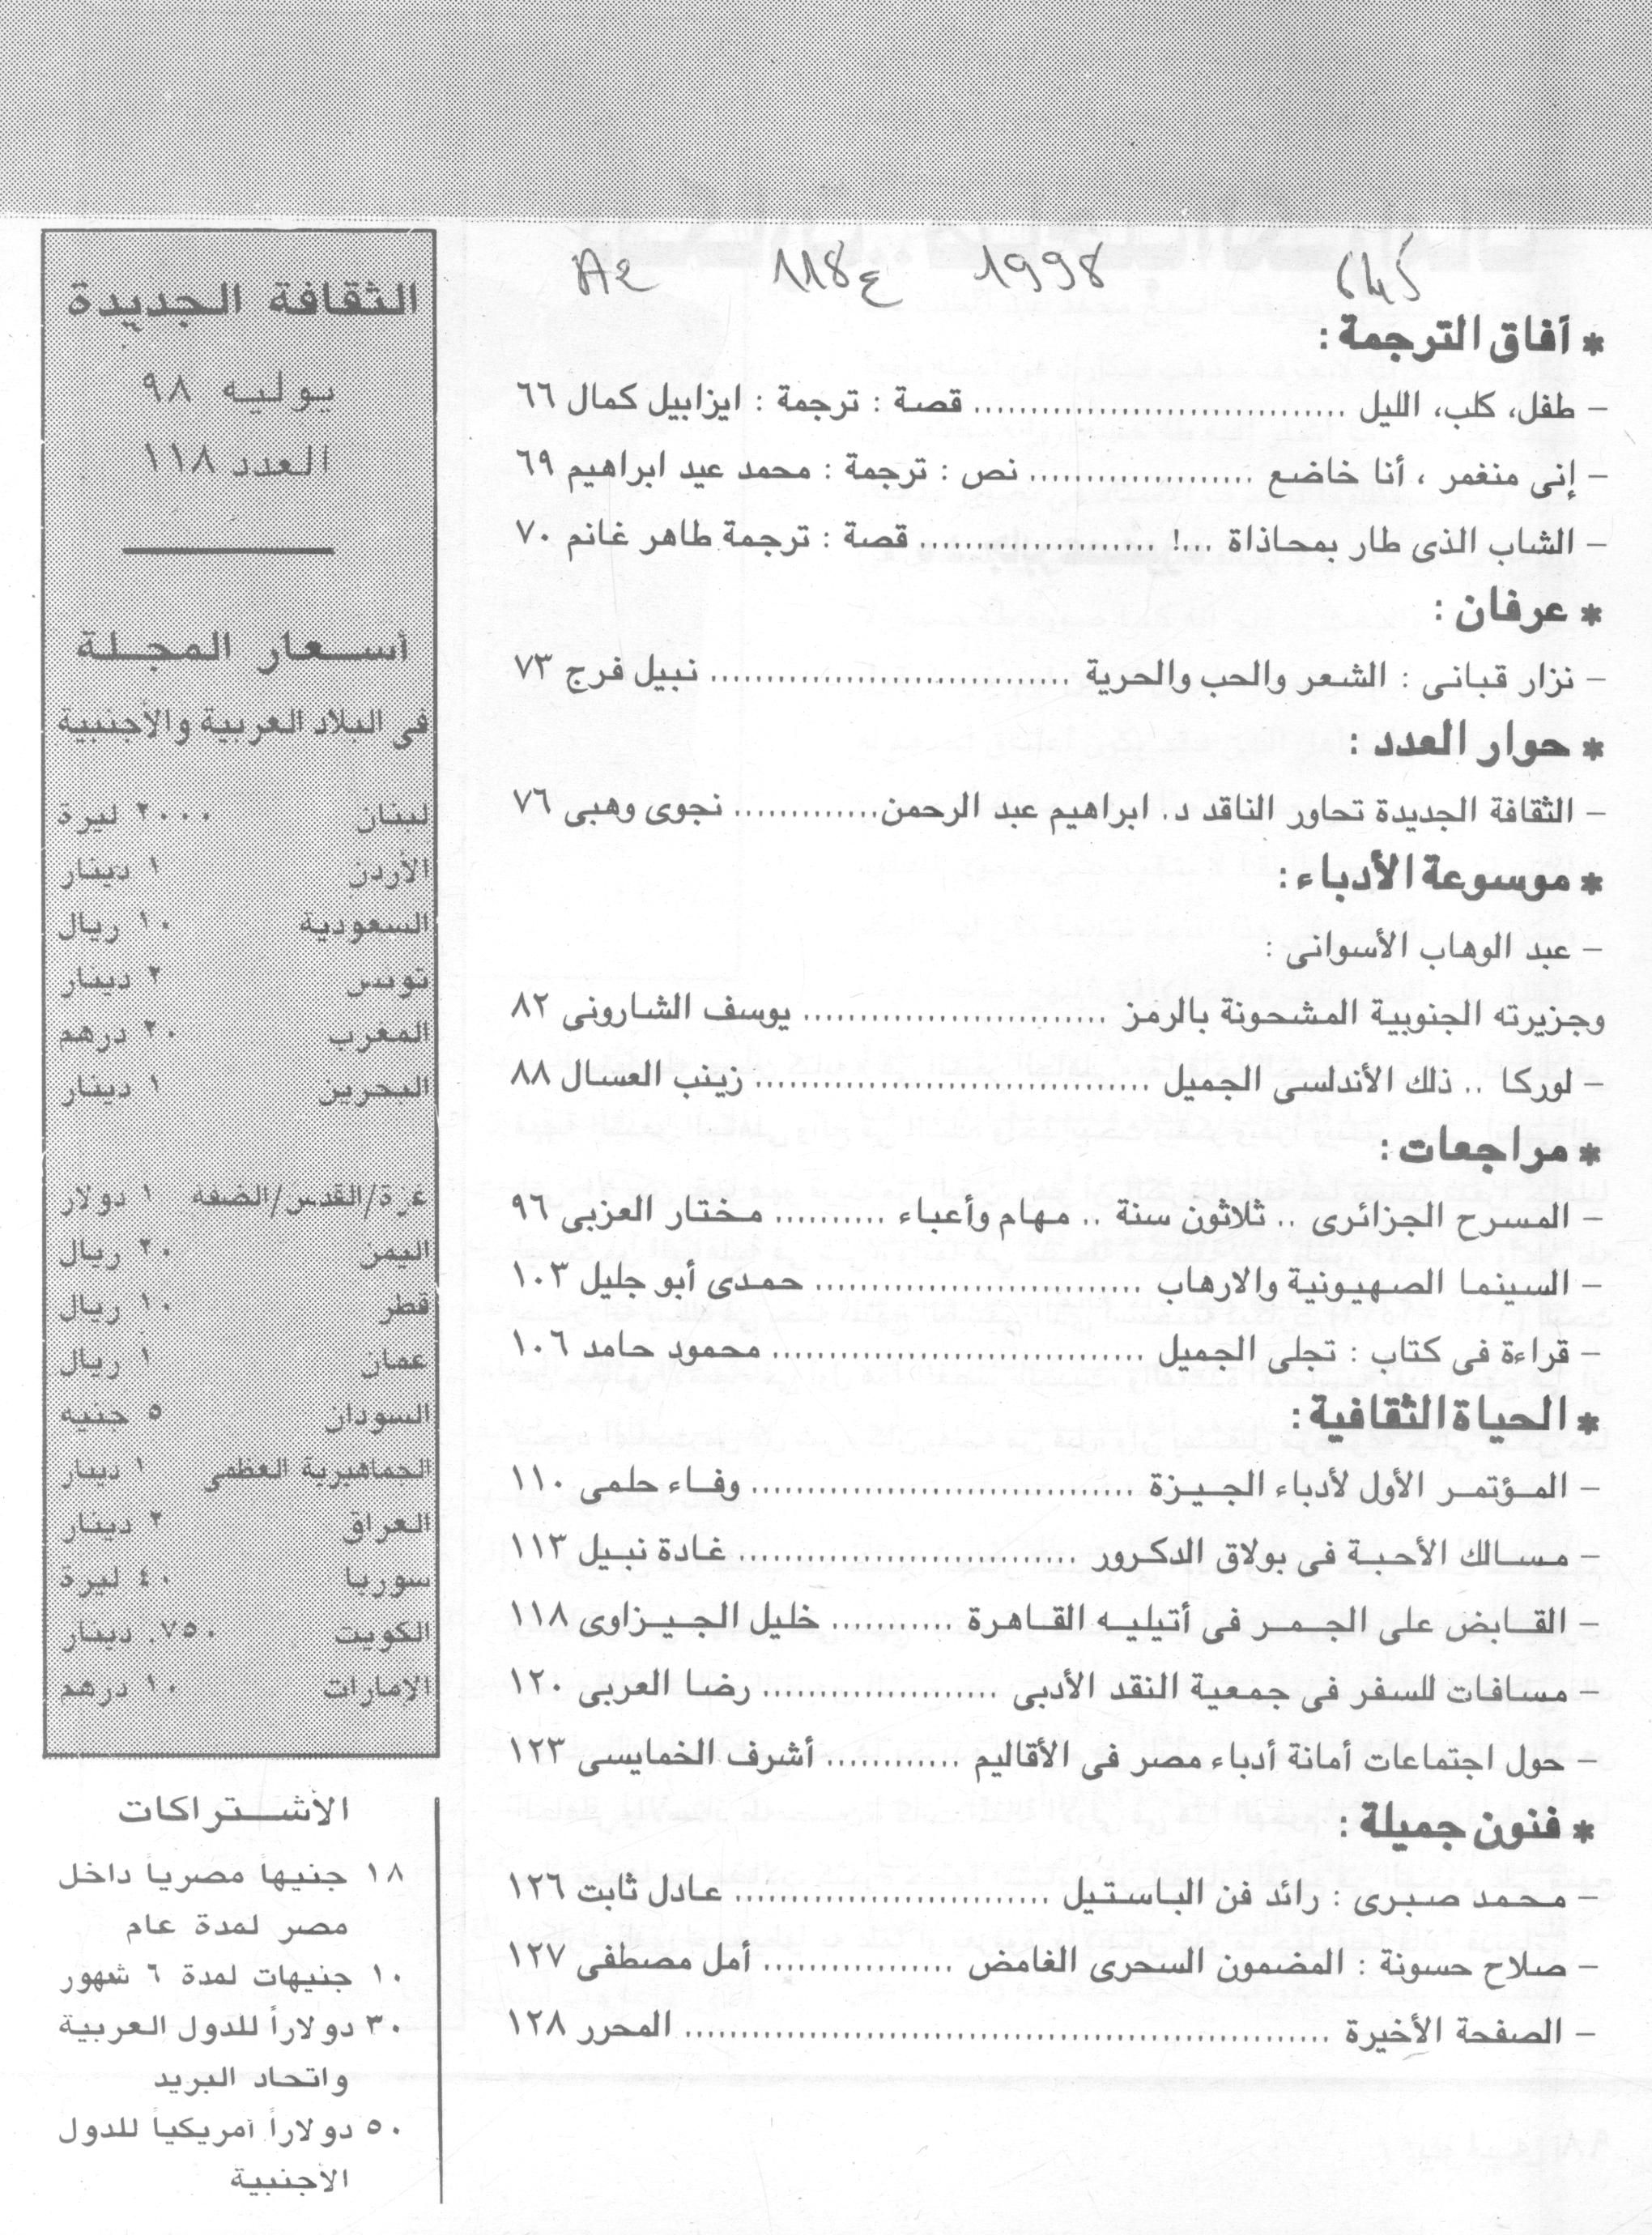 A2 118ع 1998
* آفاق الترجمة :
– طفل، كلب، الليل ................................. قصة : ترجمة : ايزابيل كمال ٦٦
– إنى منغمر ، أنا خاضع .................... نص : ترجمة : محمد عيد ابراهيم ٦٩
– الشاب الذى طار بمحاذاة ...! ..................... قصة : ترجمة طاهر غانم ٧٠
* عرفان :
– نزار قبانى : الشعر والحب والحرية ................................ نبيل فرج ٧٣
* حوار العدد :
– الثقافة الجديدة تحاور الناقد د. ابراهيم عبد الرحمن............. نجوى وهبى ٧٦
* موسوعة الأدباء :
– عبد الوهاب الأسوانى :
وجزيرته الجنوبية المشحونة بالرمز ........................... يوسف الشارونى ٨٢
– لوركا .. ذلك الأندلسى الجميل ................................... زينب العسال ٨٨
* مراجعات :
– المسرح الجزائرى .. ثلاثون سنة .. مهام وأعباء .......... مختار العزبى ٩٦
– السينما الصهيونية والارهاب ............................. حمدى أبو جليل ١٠٣
– قراءة فى كتاب : تجلى الجميل ................................. محمود حامد ١٠٦
* الحياة الثقافية :
– المؤتمر الأول لأدباء الجيزة .................................. وفاء حلمى ١١٠
– مسالك الأحبة فى بولاق الدكرور .............................. غادة نبيل ١١٣
– القابض على الجمر فى أتيليه القاهرة ........... خليل الجيزاوى ١١٨
– مسافات للسفر فى جمعية النقد الأدبى ..................... رضا العربى ١٢٠
– حول اجتماعات أمانة أدباء مصر فى الأقاليم ............ أشرف الخمايسى ١٢٣
* فنون جميلة :
– محمد صبرى : رائد فن الباستيل ............................ عادل ثابت ١٢٦
– صلاح حسونة : المضمون السحرى الغامض ................. أمل مصطفى ١٢٧
– الصفحة الأخيرة ......................................................... المحرر ١٢٨
الثقافة الجديدة
يوليه ٩٨
العدد ١١٨
أسعار المجلة
فى البلاد العربية والأجنبية
لبنان ٢٠٠٠ ليرة
الأردن ١ دينار
السعودية ١٠ ريال
تونس ٢ دينار
المغرب ٢٠ درهم
البحرين ١ دينار
غزة/القدس/الضفة ١ دولار
اليمن ٢٠ ريال
قطر ١٠ ريال
عمان ١ ريال
السودان ٥ جنيه
الجماهيرية العظمى ١ دينار
العراق ٢ دينار
سوريا ٤٠ ليرة
الكويت ٧٥٠. دينار
الإمارات ١٠ درهم
الأشتراكات
١٨ جنيهاً مصرياً داخل
مصر لمدة عام
١٠ جنيهات لمدة ٦ شهور
٣٠ دولاراً للدول العربية
واتحاد البريد
٥٠ دولاراً أمريكياً للدول
الأجنبية